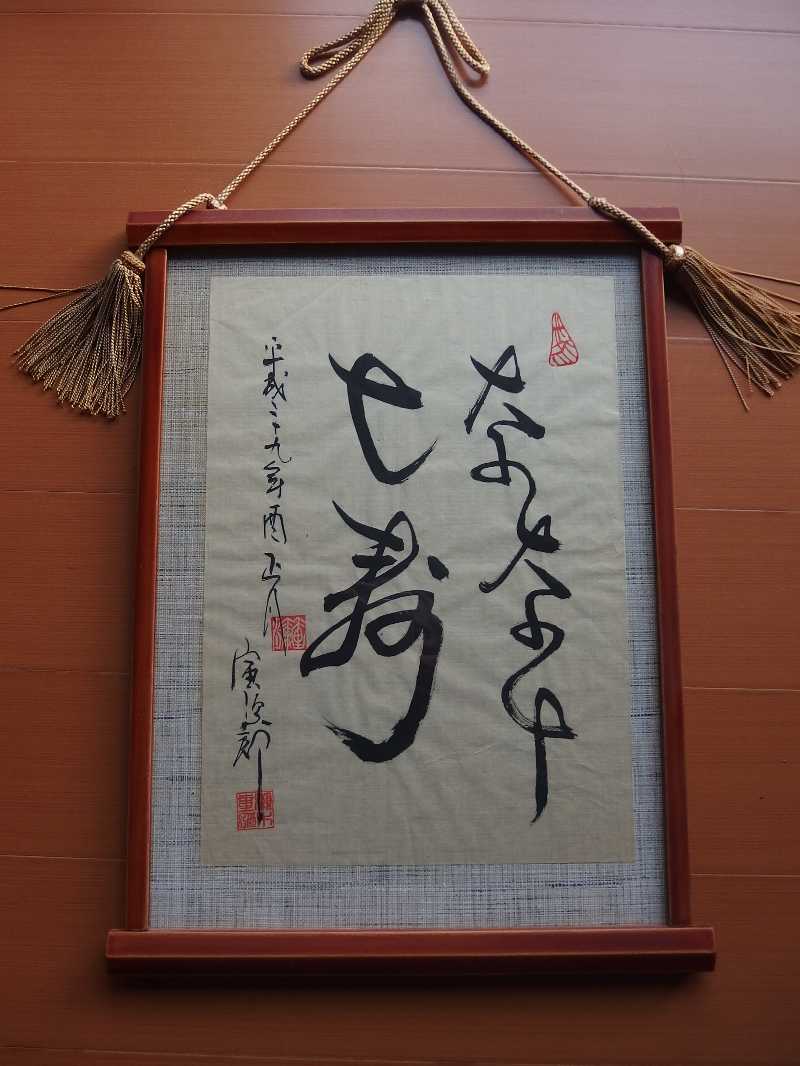 奈奈十
七寿
平成二十九年酉正月
寅次郎